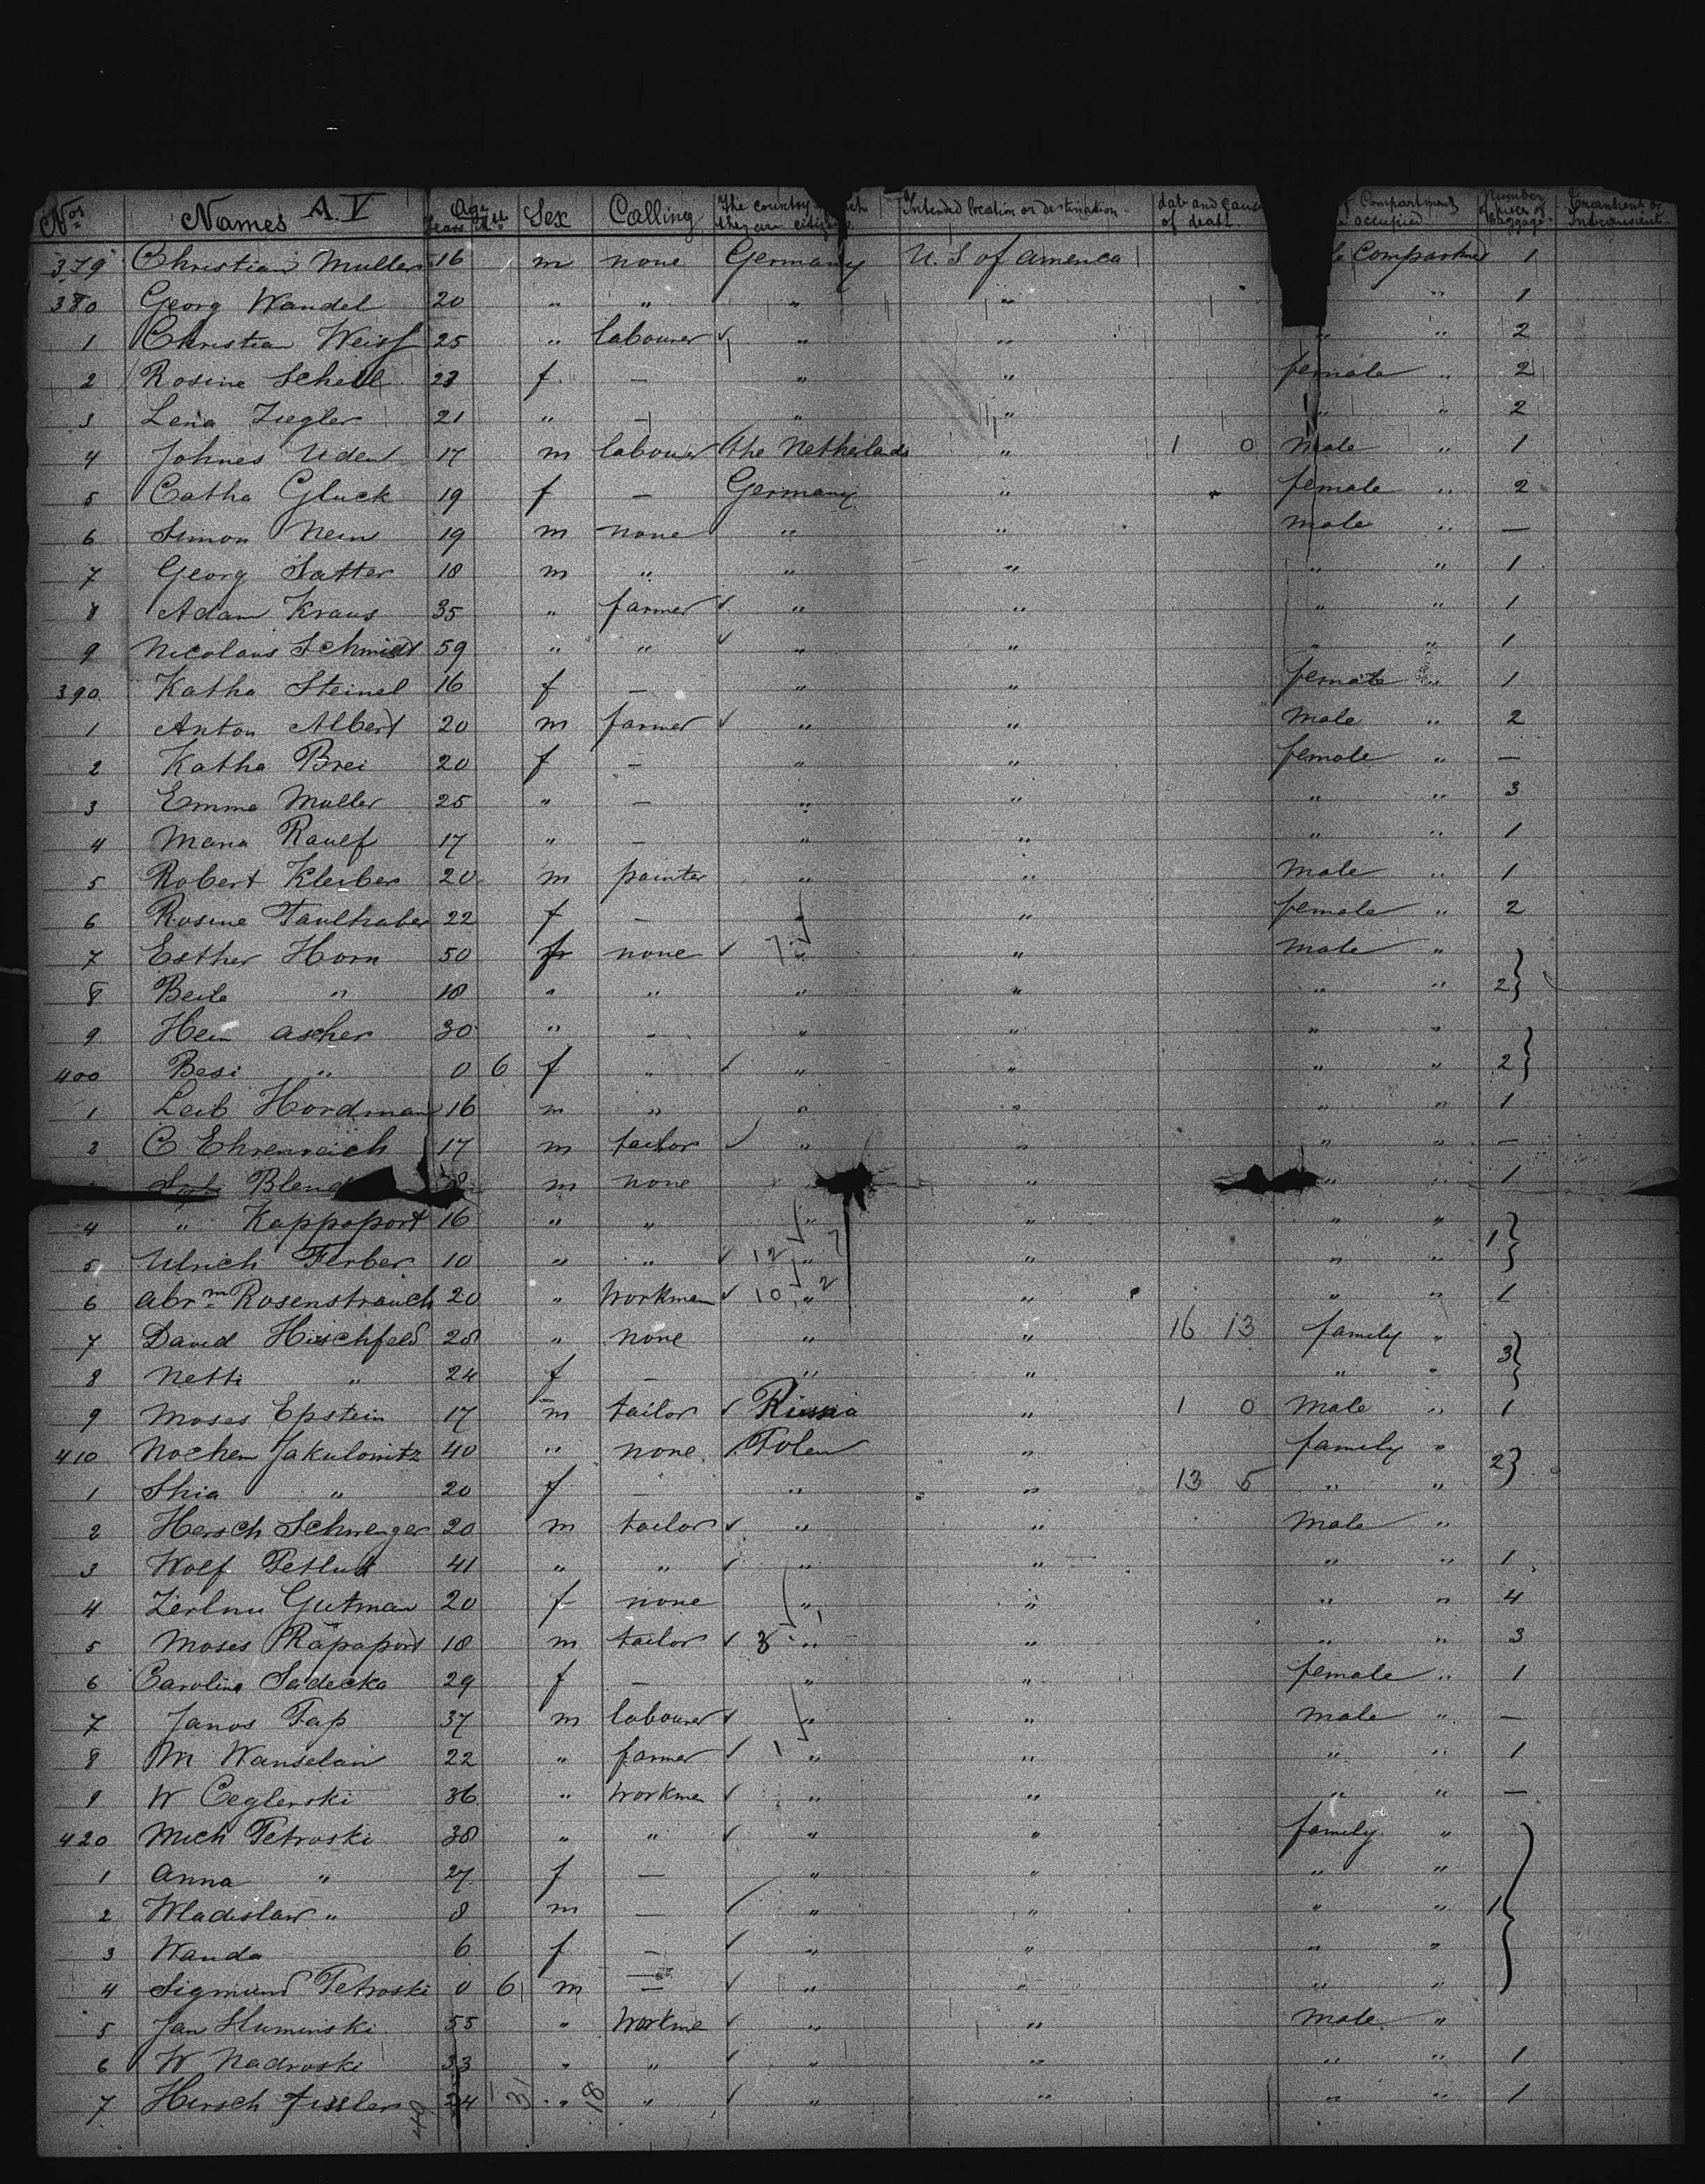 Nos Names A.V Age Years Mth Sex Calling The country they are citizens Intended location or destination. date and cause of death. Compartment occupied Number of pieces of Baggage Transient or
379 Christian Muller 16 m none Germany U. S of America Compartment 1
380 Georg Wandel 20 " " " " " 1
1 Christian Weiss 25 " labourer " " " " 2
2 Rosine Schell 23 f. — " " female " 2
3 Lena Ziegler 21 " — " " " " 2
4 Johnes Uden 17 m labourer the Netherlands " 1 0 Male " 1
5 Catha Gluck 19 f — Germany " female " 2
6 Simon Nern 19 m none " " male " —
7 Georg Satter 18 m " " " " " 1
8 Adam Kraus 35 " farmer " " " " 1
9 Nicolaus Schmidt 59 " " " " " " 1
390 Katha Steinel 16 f — " " female " 1
1 Anton Albert 20 m farmer " " Male " 2
2 Katha Brei 20 f — " " female " —
3 Emma Muller 25 " — " " " " 3
4 Maria Rauef 17 " — " " " " 1
5 Robert Kleiber 20 m painter " " Male " 1
6 Rosine Faulhaber 22 f — " " female " 2
7 Esther Horn 50 f none 7 " " Male "
8 Beile " 18 " " " " " " 2
9 Hein Ascher 30 " " " " " "
400 Besi " 0 6 f " " " " " 2
1 Leib Hordman 16 m " " " " " 1
2 C Ehrenreich 17 m tailor " " " " —
Blend m none " " " 1
4 " Rappoport 16 " " " " " "
5 Ulrich Ferber 10 " " 12 " " " " 1
6 Abrm Rosenstrauch 20 " Workman 10 " 2 " " " 1
7 David Hirschfeld 28 " none " " 16 13 family "
8 Netti " 24 f — " " " " 3
9 Moses Epstein 17 m tailor Russia " 1 0 Male " 1
410 Nochem Jakulowitz 40 " none Polen " family "
1 Shia " 20 f — " " 13 5 " " 2
2 Hersch Schwenger 20 m tailor " " Male "
3 Wolf Petlut 41 " " " " " " 1
4 Gutman 20 f none " " " " 4
5 Moses Rapaport 18 m tailor 3 " " " " 3
6 Carolina Sadecka 29 f — " " female " 1
7 Janos Pap 37 m labourer " " male " —
8 M Wanselain 22 " farmer 1 " " " " 1
9 W Ceglerski 36 " Workmen " " " " —
420 Mich Petroski 38 " " " " family "
1 Anna " 27 f — " " " "
2 Wladislaw " 8 m — " " " " 1
3 Wanda 6 f — " " " "
4 Sigmund Petroski 0 6 m — " " " "
5 Jan Sluminski 55 " Workme " " Male "
6 W Nadroski 33 " " " " " " 1
7 Hirsch Fissler 24 " " " " " " 1
49 31 18